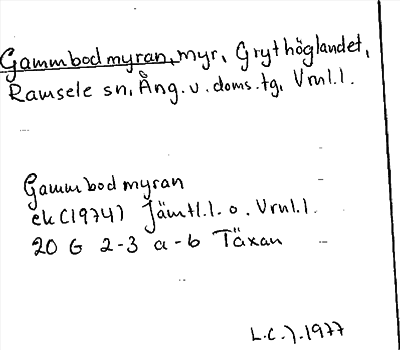 Gammbodmyran, myr, Grythöglandet,
Ramsele sn, Ång. v. doms.tg, Vrnl.l.
Gammbodmyran
ek (1974) Jämtl.l. o. Vrnl.l.
20 G 2-3 a-b Täxan
L.C.J. 1977